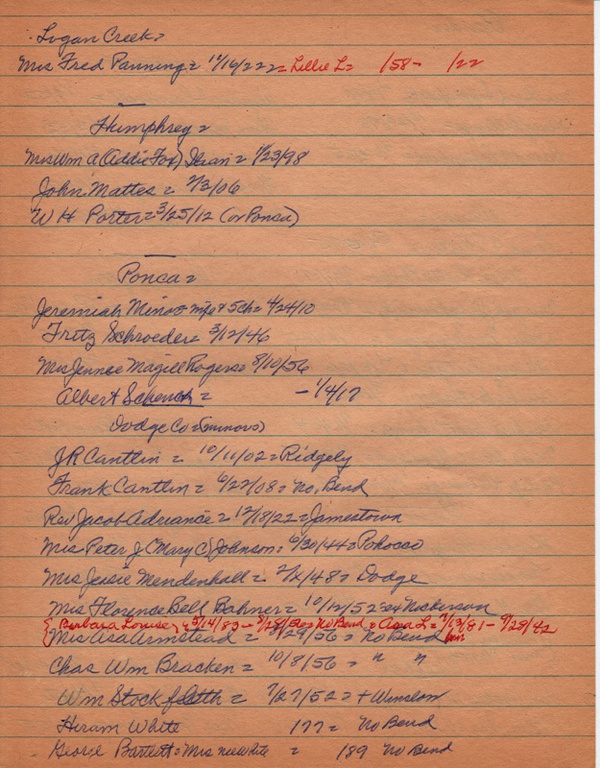 Logan Creek =
Mrs Fred Panning = 12/16/22 = Lillie L = /58 - /22
Humphrey =
Mrs Wm A (Addie Fox) = 1/23/98
John Mattes = 2/3/06
W H Porter = 3/25/12 (or Ponca)
Ponca =
Jeremiah Minor = & Sch = 4/24/10
Fritz Schroeder = 3/12/46
Mrs Jennee Magill Rogers = 8/10/56
Albert Schenck = - 1/4/17
Dodge Co = (minors)
J R Cantlin = 10/11/02 = Ridgely
Frank Cantlin = 6/22/08 = No. Bend
Rev Jacob Adriance = 12/18/22 = Jamestown
Mrs Peter J (Mary C) Johnson = 6/30/44 = Pohocco
Mrs Jessie Mendenhall = 48 = Dodge
Mrs Florence Bell Bahner = 10/12/52 = Nickerson
{ Barbara Louise } 5/14/83 - 8/28/56 = No Bend = Asa L = 2/13/81 - 9/29/42
Mrs Asa Armstead = 8/29/56 = No Bend
Chas Wm Bracken = 10/8/56 = " "
Wm = 7/27/52 = + Winslow
Hiram White 177 = No Bend
George Bartlett = Mrs nee White = 189 No Bend